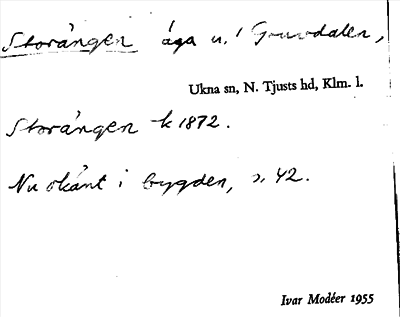 Storången äga u. Gruvdalen,
Ukna sn, N. Tjusts hd, Klm. l.
Storången k 1872.
Nu okänt i bygden, s. 42.
Ivar Modéer 1955